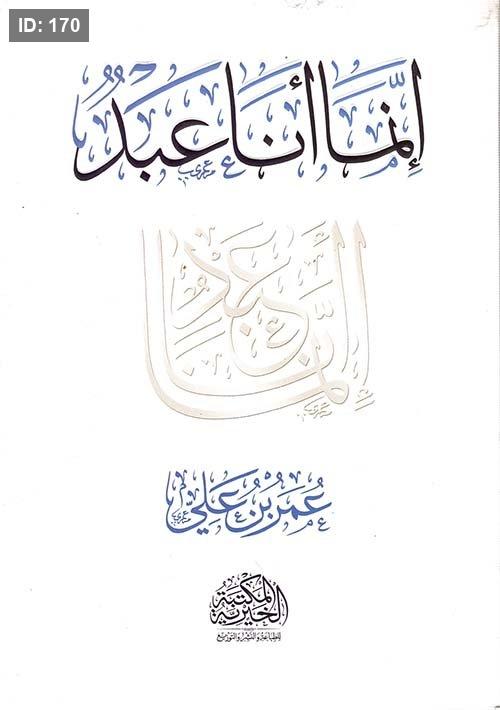 ID: 170
إِنَّمَا أَنَا عَبْدٌ
إنما أنا عبد
عُمَرُ بْنُ عَلِيّ
المكتبة
الخيرية
للطباعة والنشر والتوزيع